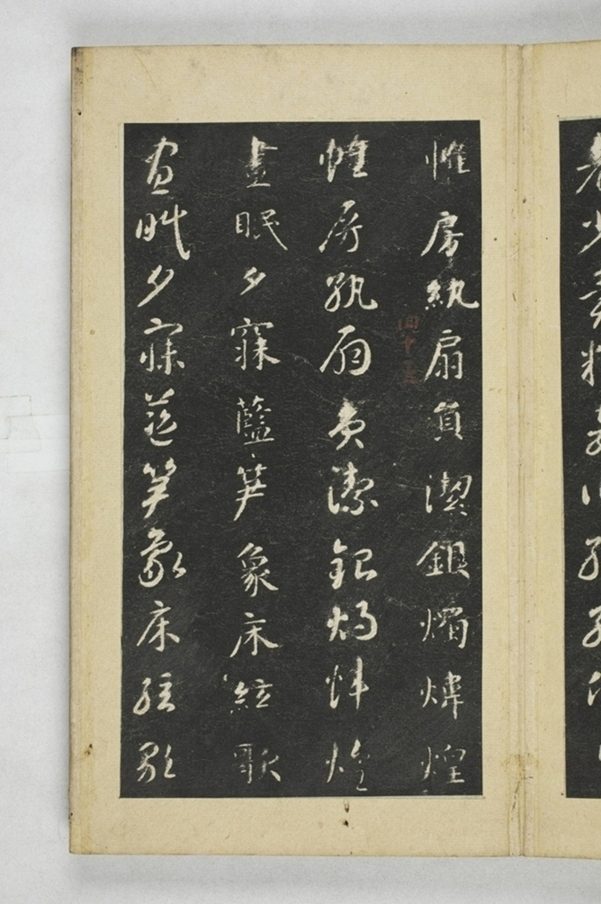 帷房紈扇員潔銀燭煒煌
帷房紈扇員潔銀燭煒煌
晝眠夕寐藍笋象床絃歌
晝眠夕寐藍笋象床絃歌